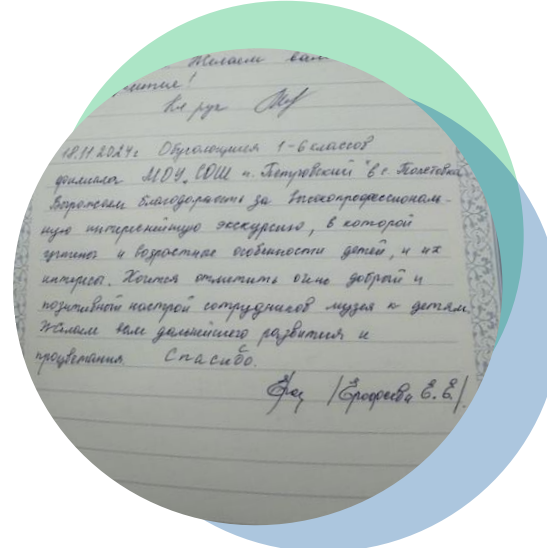 Желаем вам
Кл рук
18.11.2024г Обучающиеся 1-6 классов
филиала МОУ "СОШ п. Петровский" в с. Полетовка
Выражаем благодарность за высокопрофессионал-
ную интереснейшую экскурсию, в которой
учтены и возрастные особенности детей, и их
интересы. Хочется отметить очень добрый и
позитивный настрой сотрудников музея к детям.
Желаем вам дальнейшего развития и
процветания. Спасибо.
/Ерофеева Е.Е./